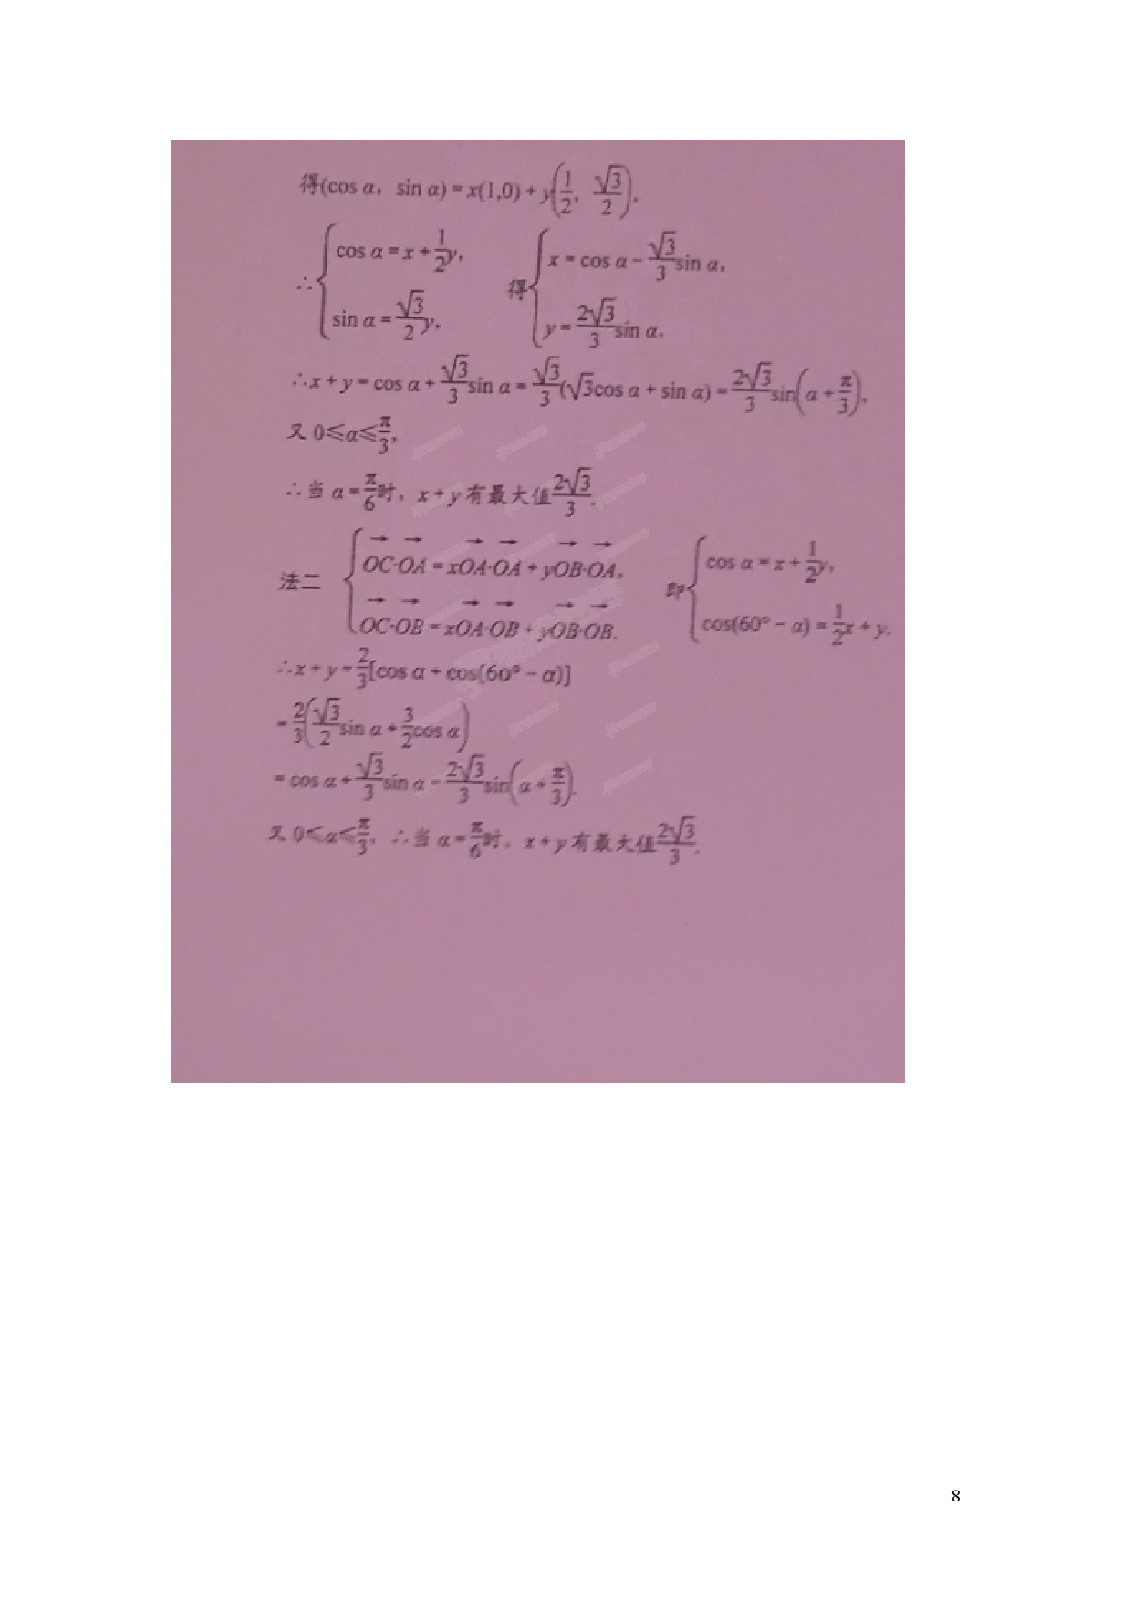 得(cos α, sin α)=x(1,0)+y(1/2, √3/2),
∴{cos α=x+1/2y, sin α=√3/2y, 得{x=cos α-√3/3sin α, y=2√3/3sin α,
∴x+y=cos α+√3/3sin α=√3/3(√3cos α+sin α)=2√3/3sin(α+π/3),
又 0≤α≤π/3,
∴当 α=π/6时, x+y 有最大值2√3/3.
法二 {OC→·OA→=xOA→·OA→+yOB→·OA→, OC→·OB→=xOA→·OB→+yOB→·OB→. 即{cos α=x+1/2y, cos(60°-α)=1/2x+y.
∴x+y=2/3[cos α+cos(60°-α)]
=2/3(√3/2sin α+3/2cos α)
=cos α+√3/3sin α=2√3/3sin(α+π/3).
又 0≤α≤π/3, ∴当 α=π/6时, x+y 有最大值2√3/3.
8